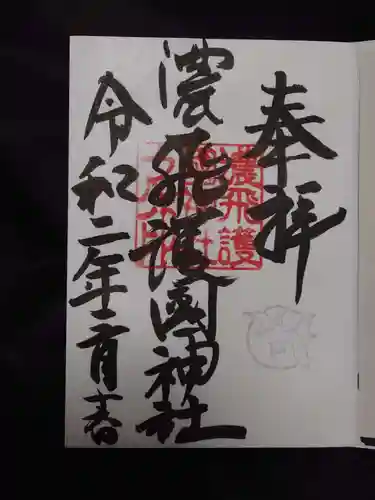 奉拝
濃飛護國神社
濃飛護
令和二年二月吉